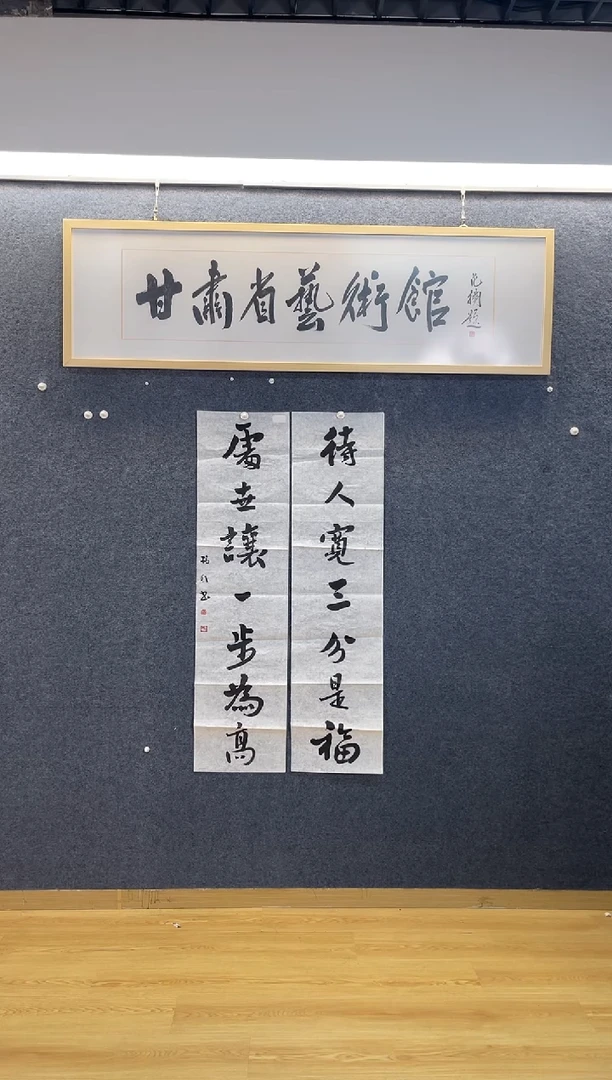 甘肅省藝術館
待人寬三分是福
處世讓一步為高